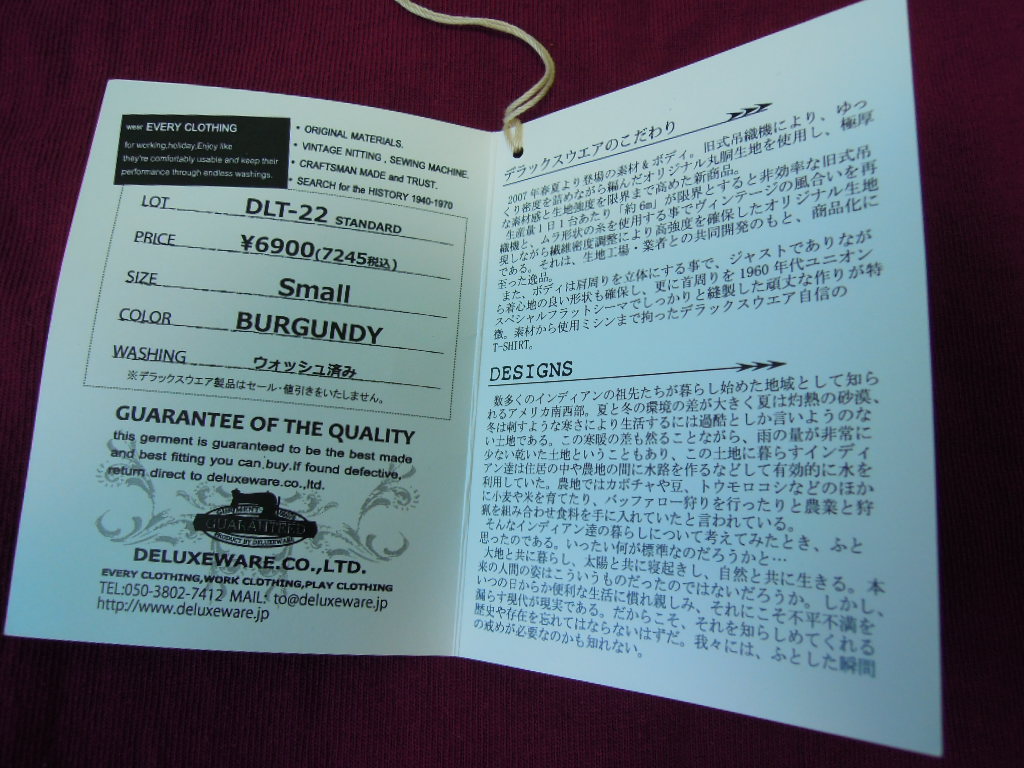 wear EVERY CLOTHING
for working,holiday,Enjoy like
they're comfortably usable and keep their
performance through endless washings.
• ORIGINAL MATERIALS.
• VINTAGE NITTING , SEWING MACHINE.
• CRAFTSMAN MADE and TRUST.
• SEARCH for the HISTORY 1940-1970
LOT DLT-22 STANDARD
PRICE ¥6900(7245税込)
SIZE Small
COLOR BURGUNDY
WASHING ウォッシュ済み
※デラックスウエア製品はセール・値引きをいたしません。
GUARANTEE OF THE QUALITY
this germent is guaranteed to be the best made
and best fitting you can,buy.If found defective,
return direct to deluxeware.co.,ltd.
GUARANTEED
PRODUCT BY DELUXEWARE
DELUXEWARE.CO.,LTD.
EVERY CLOTHING,WORK CLOTHING,PLAY CLOTHING
TEL:050-3802-7412 MAIL: to@deluxeware.jp
http://www.deluxeware.jp
デラックスウエアのこだわり
2007年春夏より登場の素材&ボディ。旧式吊織機により、ゆっ
くり密度を詰めながら編んだオリジナル丸胴生地を使用し、極厚
な素材感と生地強度を限界まで高めた新商品。
生産量1日1台あたり「約6m」が限界とすると非効率な旧式吊
織機と、ムラ形状の糸を使用する事でヴィンテージの風合いを再
現しながら繊維密度調整により高強度を確保したオリジナル生地
である。それは、生地工場・業者との共同開発のもと、商品化に
至った逸品。
また、ボディは肩周りを立体にする事で、ジャストでありなが
ら着心地の良い形状も確保し、更に首周りを1960年代ユニオン
スペシャルフラットシーマでしっかりと縫製した頑丈な作りが特
徴。素材から使用ミシンまで拘ったデラックスウエア自信の
T-SHIRT。
DESIGNS
数多くのインディアンの祖先たちが暮らし始めた地域として知ら
れるアメリカ南西部。夏と冬の環境の差が大きく夏は灼熱の砂漠、
冬は刺すような寒さにより生活するには過酷としか言いようのな
い土地である。この寒暖の差も然ることながら、雨の量が非常に
少ない乾いた土地ということもあり、この土地に暮らすインディ
アン達は住居の中や農地の間に水路を作るなどして有効的に水を
利用していた。農地ではカボチャや豆、トウモロコシなどのほか
に小麦や米を育てたり、バッファロー狩りを行ったりと農業と狩
猟を組み合わせ食料を手に入れていたと言われている。
そんなインディアン達の暮らしについて考えてみたとき、ふと
思ったのである。いったい何が標準なのだろうかと…
大地と共に暮らし、太陽と共に寝起きし、自然と共に生きる。本
来の人間の姿はこういうものだったのではないだろうか。しかし、
いつの日からか便利な生活に慣れ親しみ、それにこそ不平不満を
漏らす現代が現実である。だからこそ、それを知らしめてくれる
歴史や存在を忘れてはならないはずだ。我々には、ふとした瞬間
の戒めが必要なのかも知れない。